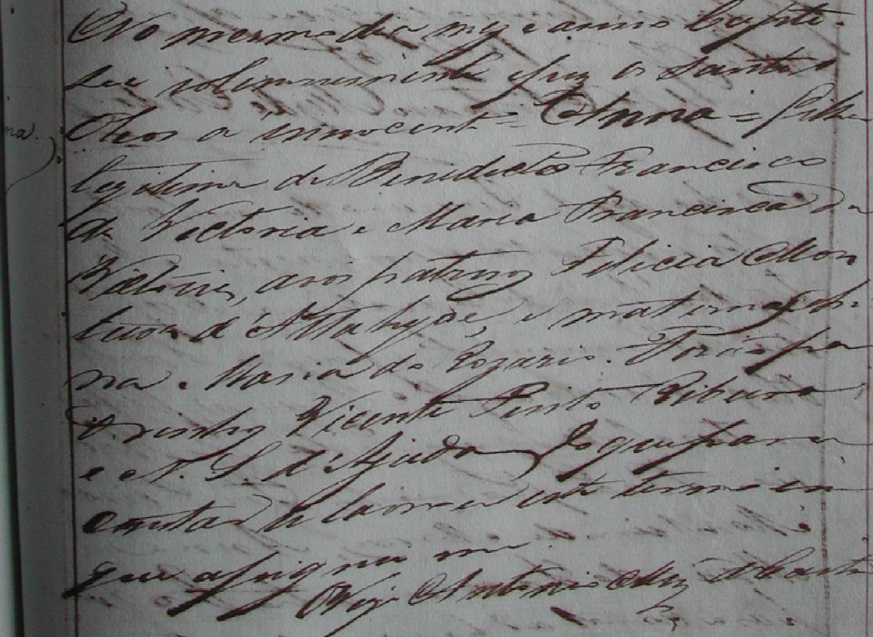 No mesmo dia mez e anno bapti-
sei solemnemente e puz os Santos
Oleos a innocente = Anna = filha
legitima de Benedicto Francisco
da Victoria e Maria Francisca da
Victoria, avos paternos Felicia Mon
teiro d'Attahyde, e maternos
na Maria do Rozario. Forão pa
drinhos Vicente Pinto Ribeiro
e N. S. d'Ajuda. Do que para
constar se lavrou este termo em
que assigno me.
Vigº Antonio